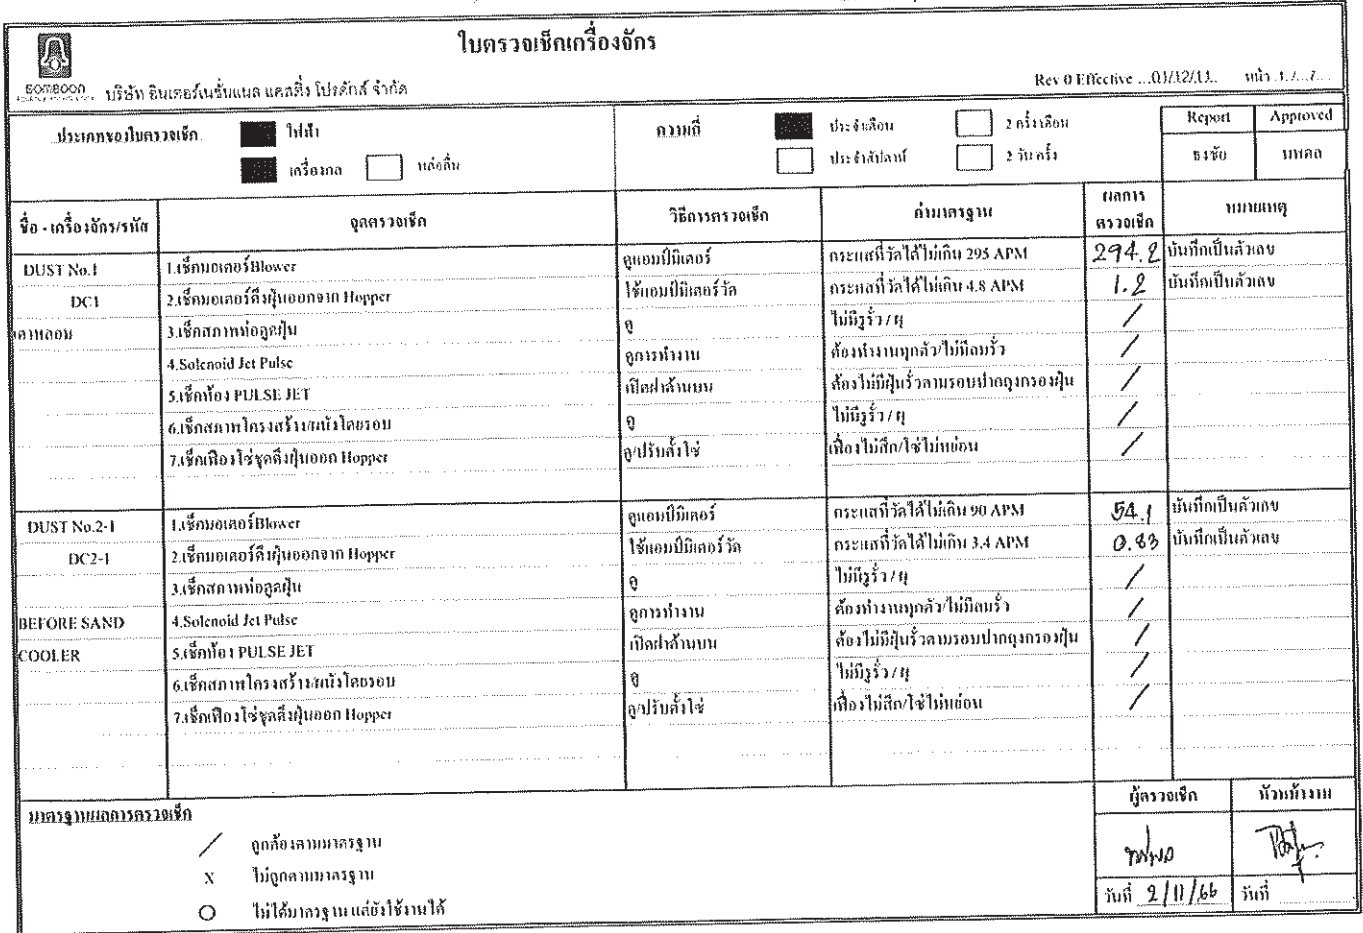 ใบตรวจเช็กเครื่องจักร
SOMBOON
บริษัท อินเตอร์เนชั่นแนล แคสติ้ง โปรดักส์ จำกัด
Rev 0 Effective ...01/12/11.. หน้า .1./...7...
ประเภทของใบตรวจเช็ก ไฟฟ้า ความถี่ ประจำเดือน 2 ครั้ง/เดือน Report Approved
เครื่องกล หล่อลื่น ประจำสัปดาห์ 2 วัน/ครั้ง ธงชัย นพดล
ชื่อ - เครื่องจักร/รหัส จุดตรวจเช็ก วิธีการตรวจเช็ก ค่ามาตรฐาน ผลการตรวจเช็ก หมายเหตุ
DUST No.1 1.เช็กมอเตอร์Blower ดูแอมป์มิเตอร์ กระแสที่วัดได้ไม่เกิน 295 APM 294.2 บันทึกเป็นตัวเลข
DC1 2.เช็กมอเตอร์ดึงฝุ่นออกจาก Hopper ใช้แอมป์มิเตอร์วัด กระแสที่วัดได้ไม่เกิน 4.8 APM 1.2 บันทึกเป็นตัวเลข
เตาหลอม 3.เช็กสภาพท่อดูดฝุ่น ดู ไม่มีรูรั่ว / ผุ /
4.Solenoid Jet Pulse ดูการทำงาน ต้องทำงานทุกตัว/ไม่มีลมรั่ว /
5.เช็กห้อง PULSE JET เปิดฝาด้านบน ต้องไม่มีฝุ่นรั่วตามรอบปากถุงกรองฝุ่น /
6.เช็กสภาพโครงสร้าง/ผนังโดยรอบ ดู ไม่มีรูรั่ว / ผุ /
7.เช็กเฟืองโซ่ชุดดึงฝุ่นออก Hopper ดู/ปรับตั้งโซ่ เฟืองไม่สึก/โซ่ไม่หย่อน /
DUST No.2-1 1.เช็กมอเตอร์Blower ดูแอมป์มิเตอร์ กระแสที่วัดได้ไม่เกิน 90 APM 54.1 บันทึกเป็นตัวเลข
DC2-1 2.เช็กมอเตอร์ดึงฝุ่นออกจาก Hopper ใช้แอมป์มิเตอร์วัด กระแสที่วัดได้ไม่เกิน 3.4 APM 0.83 บันทึกเป็นตัวเลข
3.เช็กสภาพท่อดูดฝุ่น ดู ไม่มีรูรั่ว / ผุ /
BEFORE SAND 4.Solenoid Jet Pulse ดูการทำงาน ต้องทำงานทุกตัว/ไม่มีลมรั่ว /
COOLER 5.เช็กห้อง PULSE JET เปิดฝาด้านบน ต้องไม่มีฝุ่นรั่วตามรอบปากถุงกรองฝุ่น /
6.เช็กสภาพโครงสร้าง/ผนังโดยรอบ ดู ไม่มีรูรั่ว / ผุ /
7.เช็กเฟืองโซ่ชุดดึงฝุ่นออก Hopper ดู/ปรับตั้งโซ่ เฟืองไม่สึก/โซ่ไม่หย่อน /
มาตรฐานผลการตรวจเช็ก ผู้ตรวจเช็ก หัวหน้างาน
/ ถูกต้องตามมาตรฐาน
X ไม่ถูกตามมาตรฐาน
O ไม่ได้มาตรฐาน แต่ยังใช้งานได้
วันที่ 2/11/66 วันที่